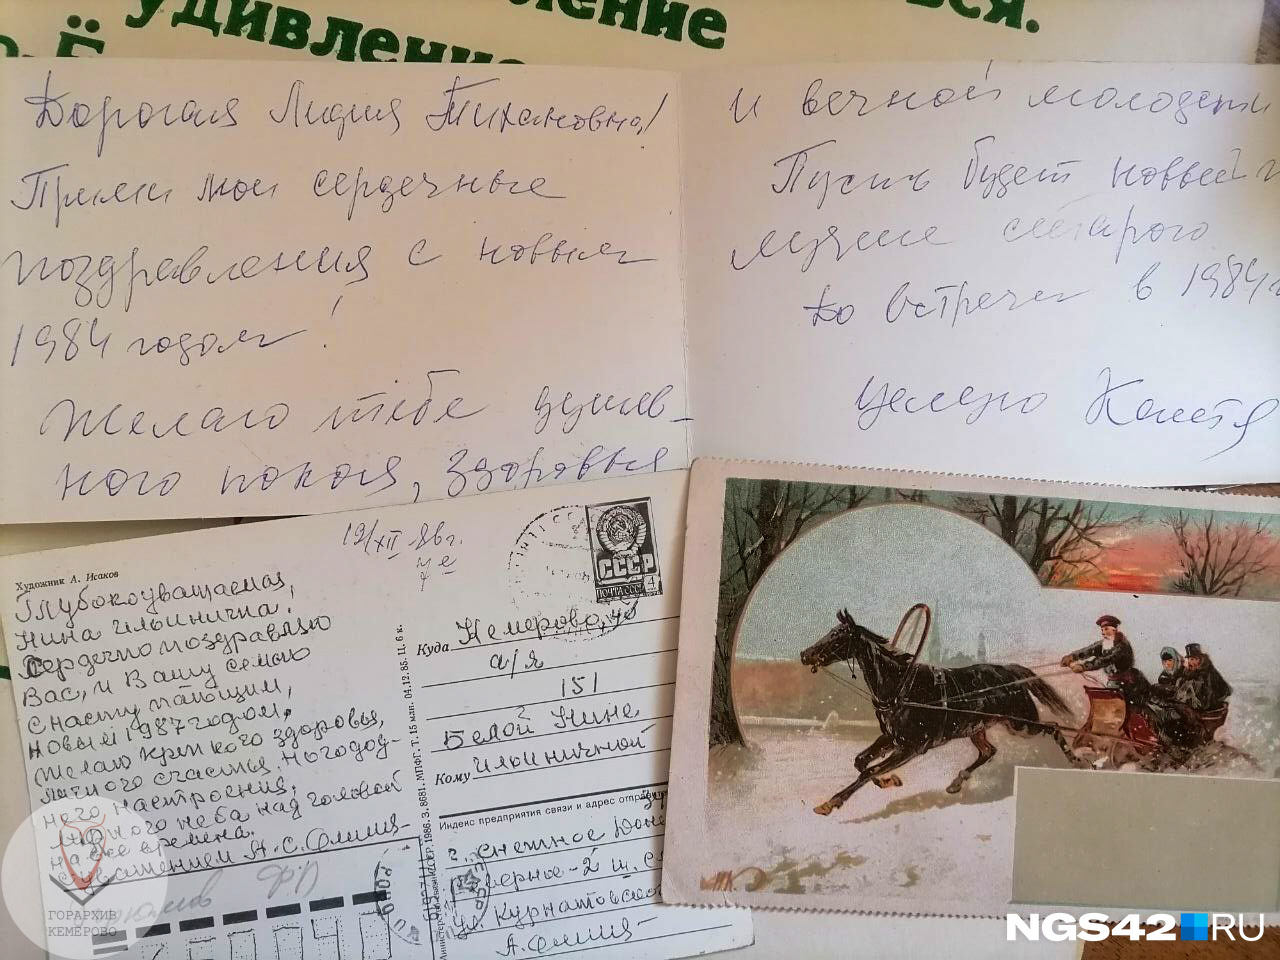 удивление
ление
ься.
Дорогая Лидия Тихановна!
Прими мои сердечные
поздравления с новым
1984 годом!
Желаю тебе душев-
ного покоя, здоровья
и вечной молодости
Пусть будет новый
лучше старого
До встречи в 1984
целую Костя
Художник А. Исаков
Глубокоуважаемая
Нина Ильинична!
Сердечно поздравляю
Вас, и Вашу семью
с наступающим,
новым 1987 годом.
Желаю крепкого здоровья,
личного счастья, ногодод-
него настроения,
мирного неба над головой
на все времена.
С уважением А.С.
19/XII-86г.
СССР
ПОЧТА СССР
4
Куда Кемерово, 40
а/я
151
Белой Нине
Кому Ильиничной
Индекс предприятия связи и адрес отправ
г. Снежное Дон
верное-2 ш.
ул. Курнатовског
З. 8681. МПФГ. Т. 15 млн. 04.12. 85. Ц. 6 к.
ГОРАРХИВ
КЕМЕРОВО
NGS42.RU